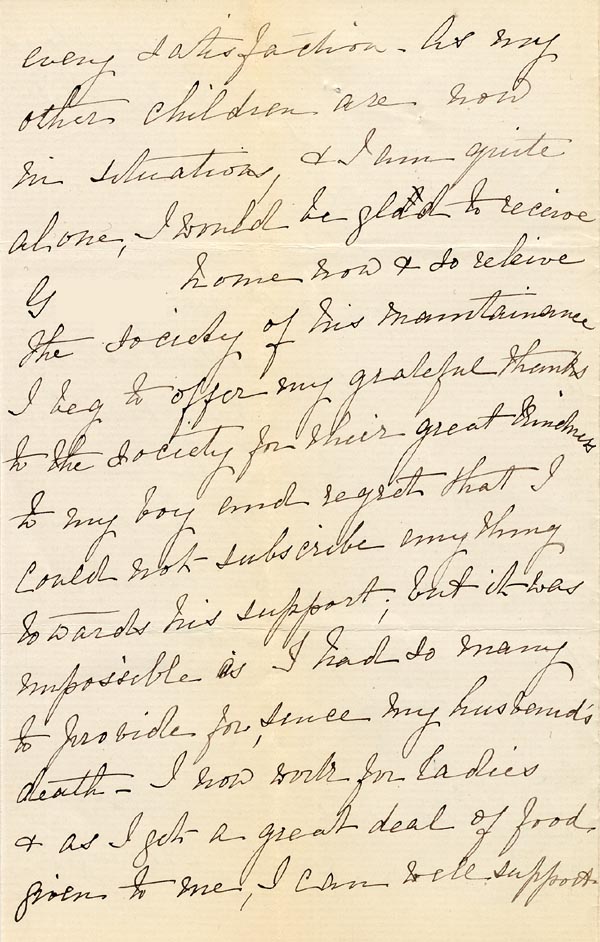 every satisfaction - As my
other children are now
in situations, & I am quite
alone, I would be glad to receive
G home now & so relieve
the society of his maintainance
I beg to offer my grateful thanks
to the society for their great kindness
to my boy and regret that I
could not subscribe anything
towards his support; but it was
impossible as I had so many
to provide for, since my husband's
death - I now work for Ladies
& as I get a great deal of food
given to me, I can well support